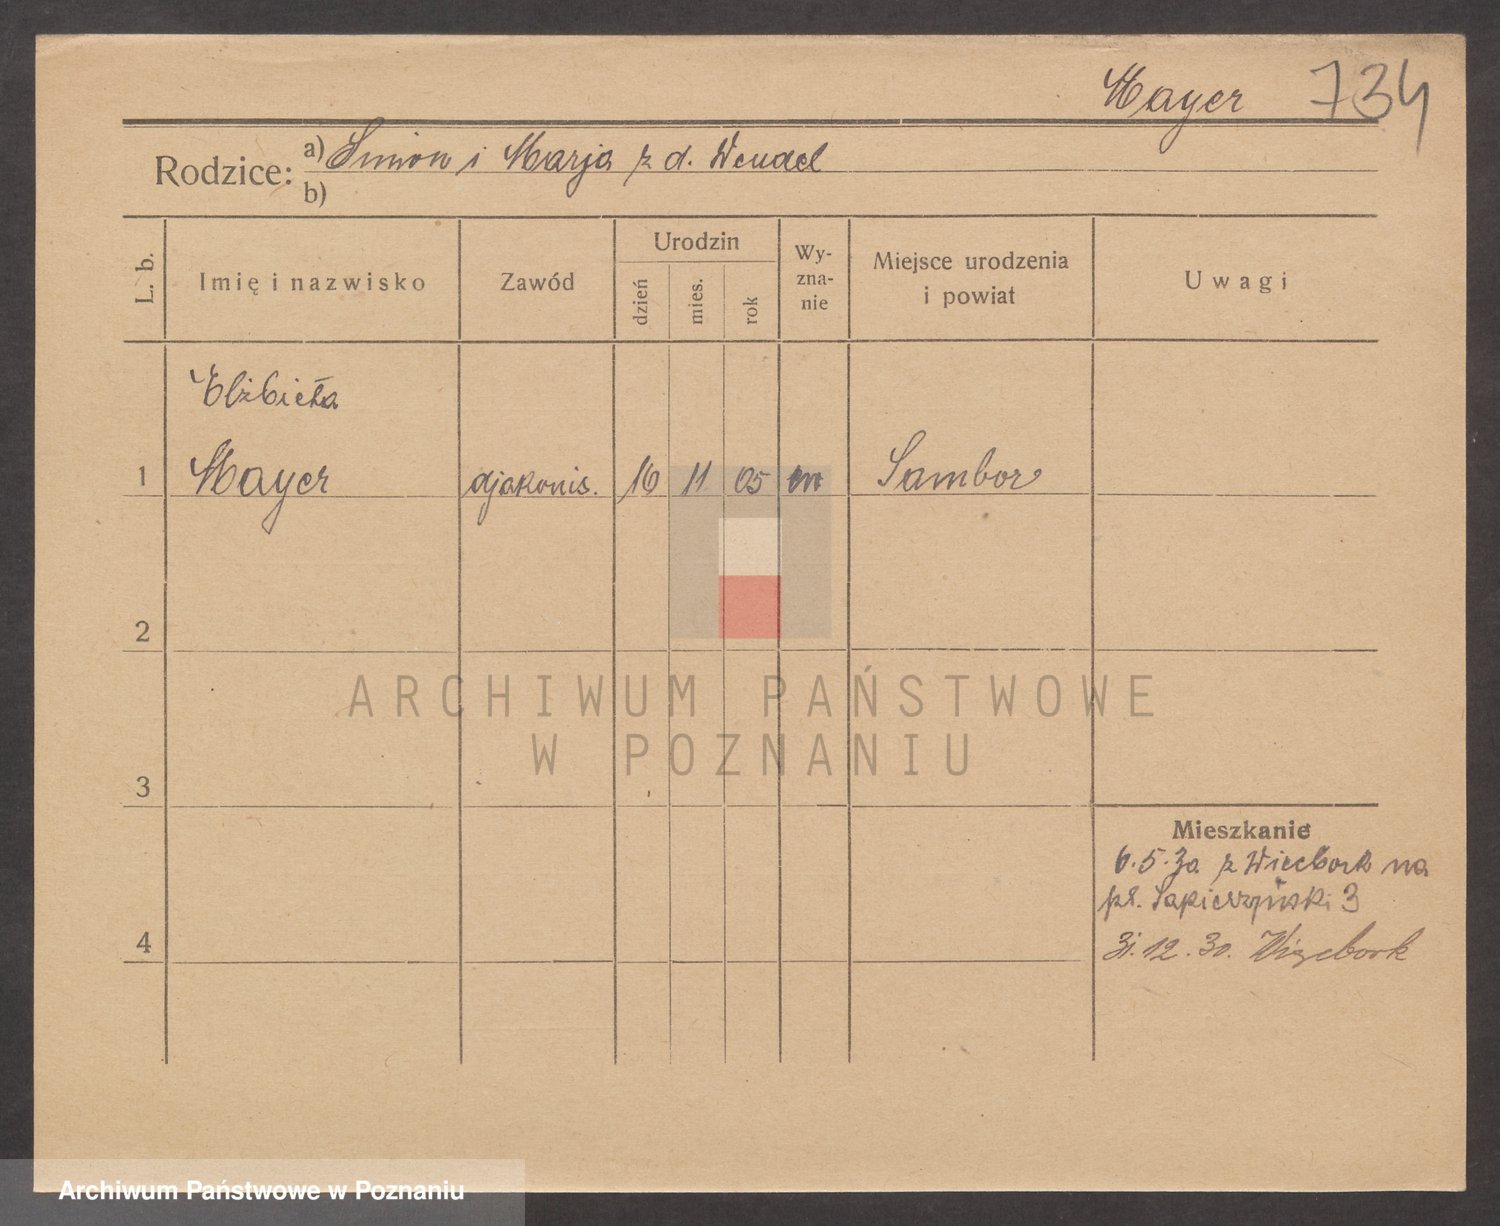 Mayer 734
Rodzice: a) Simon i Marja z d. Wendel
b)
L. b.
Imię i nazwisko
Zawód
Urodzin
dzień
mies.
rok
Wy-
zna-
nie
Miejsce urodzenia
i powiat
Uwagi
Elżbieta
1 Mayer djakonis. 16 11 05 em Sambor
2
ARCHIWUM PAŃSTWOWE
W POZNANIU
3
Mieszkanie
6.5.30 z Wiecbork na
pl. Sapieżyński 3
4
31.12.30. Więcbork
Archiwum Państwowe w Poznaniu